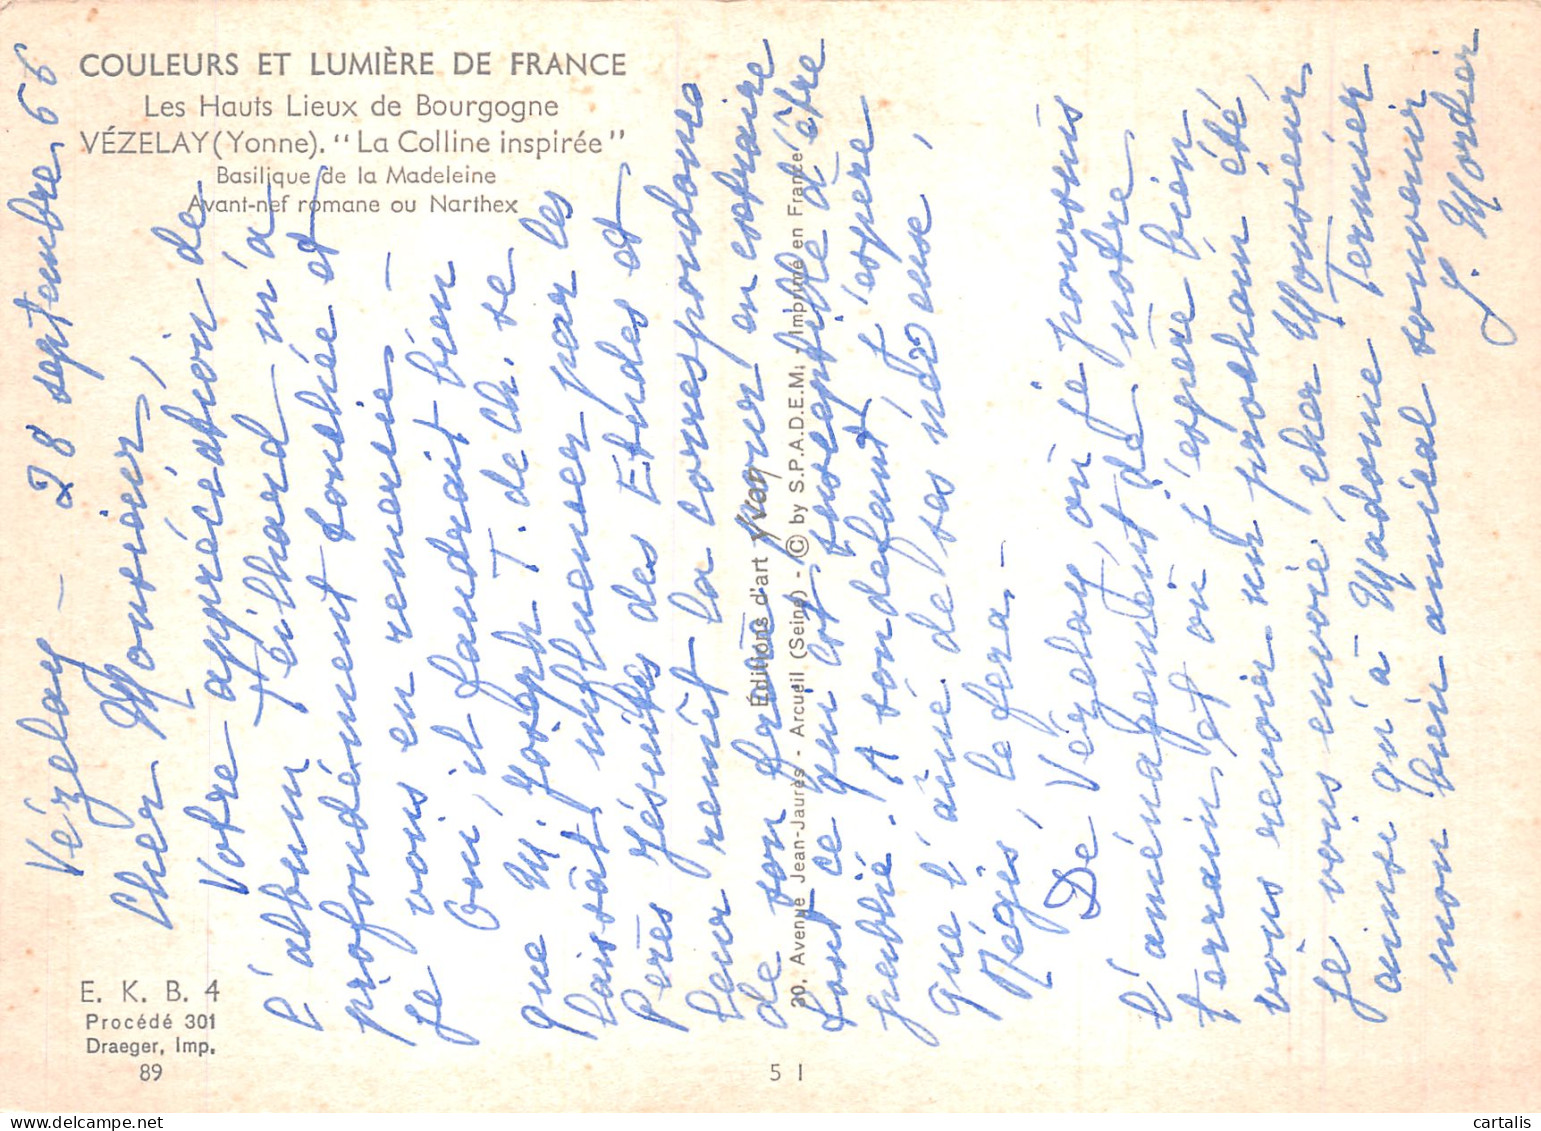 COULEURS ET LUMIÈRE DE FRANCE
Les Hauts Lieux de Bourgogne
VÉZELAY (Yonne). "La Colline inspirée"
Basilique de la Madeleine
Avant-nef romane ou Narthex
E. K. B. 4
Procédé 301
Draeger, Imp.
89
5 1
Éditions d'art Yvon
30, Avenue Jean-Jaurès - Arcueil (Seine) - © by S.P.A.D.E.M. Imprimé en France
Vézelay - 28 septembre 66
Cher Monsieur,
Votre appréciation de
l'album Teilhard m'a
profondément touchée et
je vous en remercie -
Oui, il faudrait bien
que M. Joseph T. de Ch. se
laissât influencer par les
Pères Jésuites des Etudes et
leur remît la correspondance
de son frère pour en extraire
tout ce qui est susceptible d'être
publié. A son défaut, j'espère
que l'aîné de ses neveux,
Régis, le fera -
De Vézelay, où je poursuis
l'aménagement de notre
terrain et où j'espère bien
vous revoir un prochain été,
je vous envoie, cher Monsieur
ainsi qu'à Madame Termier
mon bien amical souvenir
J. Mortier
cartalis
delcampe.net